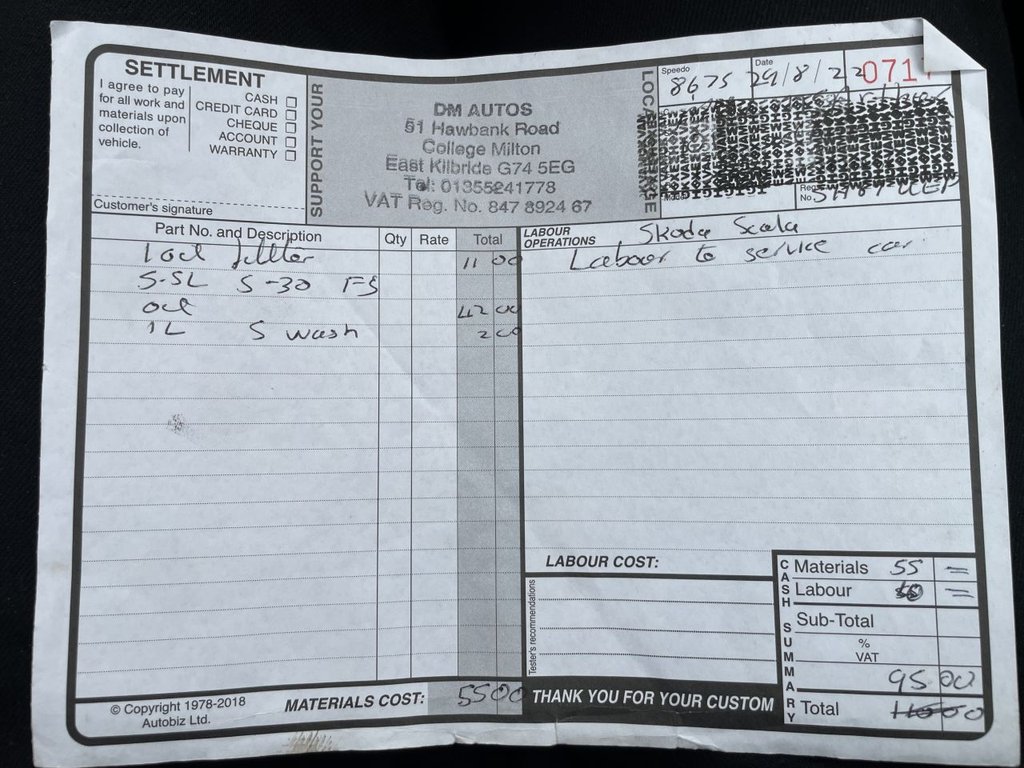 SETTLEMENT
I agree to pay
for all work and
materials upon
collection of
vehicle.
CASH
CREDIT CARD
CHEQUE
ACCOUNT
WARRANTY
Customer's signature
SUPPORT YOUR
DM AUTOS
51 Hawbank Road
College Milton
East Kilbride G74 5EG
Tel: 01355241778
VAT Reg. No. 847 8924 67
Speedo
8675
Date
29/8/22
071
Reg
No
Part No. and Description Qty Rate Total
1 oil filter 11 00
5-5L 5-30 FS
oil 42 00
1L S wash 2 00
MATERIALS COST: 55 00
© Copyright 1978-2018
Autobiz Ltd.
LABOUR
OPERATIONS
Skoda Scala
Labour to service car.
LABOUR COST:
Tester's recommendations
THANK YOU FOR YOUR CUSTOM
CASH SUMMARY
Materials 55 =
Labour =
Sub-Total
%
VAT
95 00
Total